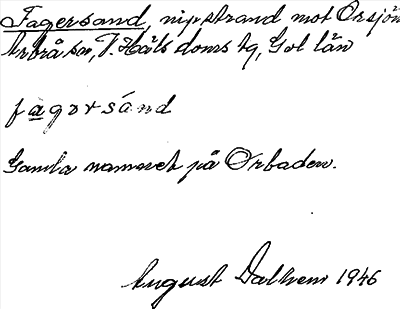 Fagersand, nipstrand mot Orsjön
Arbrå sn, V. Häls doms tg, Gol län
fagərsánd
Gamla namnet på Orbaden.
August Dalhem 1946